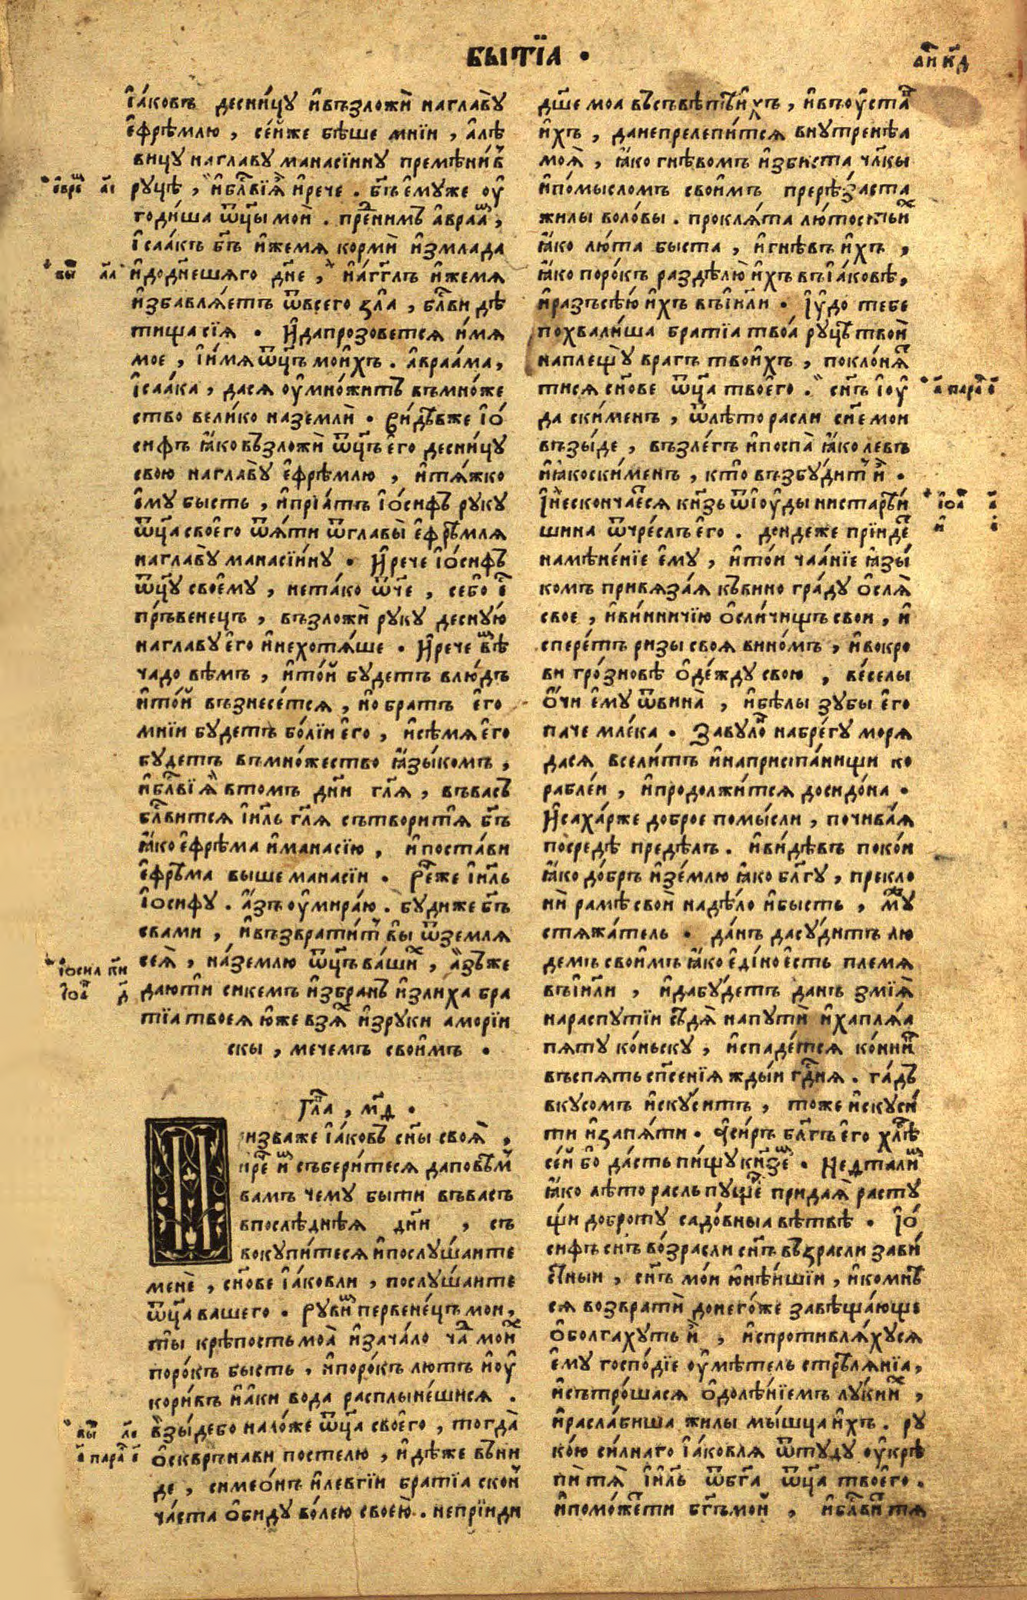 БЫТЇА ·
І҆а́ковъ десни́цу и҆възложѝ наглаву
є҆фре́млю, се́йже бѣ́ше мні́и, а҆лѣ
вицу наглаву манасі́ину премѣни́въ
руцѣ̀, и҆бл҃ви́ѧ и҆рече. бг҃ъ є҆муже оу҆
годи́ша ѿц҃ы мои̑. пре́нимъ а҆враа́мъ,
І҆саа́къ бг҃ъ и҆жемѧ корми̑ и҆змлада
и҆додн҃ешѧго дн҃е, и҆а҆гг҃лъ и҆жемѧ
и҆збавлѧ́етъ ѿвсего зла̀, бл҃ви дѣ
тища сїѧ. И҆дапрозове́тсѧ и҆мѧ
мое, і҆и҆мѧ ѿц҃ъ мои́хъ. а҆враа́ма,
І҆саа́ка, дасѧ оу҆мно́житъ въмно́же
ство вели́ко наземлѝ. Ви́дѣвже і҆о́
сифъ ꙗ҆ковъзложѝ ѿц҃ъ є҆го̀ десни́цу
свою наглаву є҆фре́млю, и҆тѧ́жко
є҆му бысть, и҆прїѧ́тъ і҆о́сифъ руку
ѿц҃а своего̀ ѿѧ́ти ѿглавы̀ є҆фре́млѧ
наглаву манасі́ину. И҆рече і҆о́сифъ
ѿц҃у своему̀, нета́ко ѿч҃е, себо є҆́
пръвенецъ, възложѝ руку деснꙋ́ю
наглаву є҆го̀ и҆нехотѧ́ше. И҆рече вѣ́
чадо вѣмъ, и҆то́й бу́детъ влю́дъ
и҆то́й възнесе́тсѧ, но братъ є҆го
мні́и бу́детъ бо́лїи є҆го̀, и҆сѣ́мѧ є҆го
бу́детъ въмно́жество ꙗ҆зы́комъ,
и҆бл҃ви́ѧ втомъ дн҃и гл҃ѧ, въвасъ
бл҃витсѧ і҆и҃ль гл҃ѧ сътвори́тѧ бг҃ъ
ꙗ҆ко є҆фре́ма и҆манасі́ю, и҆поста́ви
є҆фре́ма выше манасі́и. Рече́же і҆и҃ль
і҆о́сифу. а҆́зъ оу҆мира́ю. бу́диже бг҃ъ
свами, и҆възврати́тъ вы̀ ѿземлѧ
сеѧ̀, на́землю ѿц҃ъ ва́ши, а҆́зъже
даю́ти сикемъ и҆збранъ и҆злиха бра
тїа твоеѧ ю҆же взѧ́ и҆зруки амо́рїи
скы, мечемъ свои́мъ.
Гл҃а, м҃д.
Призваже і҆а́ковъ сн҃ы своѧ̀,
и҆рече и҆ съберитесѧ даповѣ́мъ
вамъ чему быти въвасъ
впослѣ́днѧѧ дн҃и, съ
вокупи́тесѧ и҆послу́шаите
мене, сн҃ове і҆а́ковли, послу́шаите
ѿц҃а вашего. Руви́мъ первене́цъ мои,
ты крѣ́пость моа̀ и҆зача́ло ча́дъ мои́
поро́къ бысть, и҆поро́къ лютъ и҆оу҆
кори́въ и҆а́ки вода расплыне́шисѧ.
Взы́дебо нало́же ѿц҃а своего̀, тогда̀
о҆сквръ́нави постелю, и҆дѣ́же въ́ни
де, симео́нъ и҆левгі́и братїа скон
ча́ста о҆биду во́лею своею. непрїиди
дш҃е моа въсъвѣ́тъ и҆́хъ, и҆въоу҆ста́
и҆́хъ, данепрелепи́тсѧ внутренѣѧ
моѧ̀, ꙗ҆ко гнѣвомъ и҆зби́ста чл҃кы
и҆по́мысломъ свои́мъ прерѣ́заста
жилы воловы. проклѧ́та лю́тость и҆́
ꙗ҆ко люта быста, и҆гнѣ́въ и҆́хъ,
ꙗ҆ко поро́къ раздѣлю̀ и҆́хъ въі҆а́ковѣ,
и҆разсѣ́ю и҆́хъ въі҆и҃ли. І҆ю́до тебе
похвали́ша братїа твоа́ руцѣ̀ твои̑
наплещу̀ врагъ твои́хъ, поклонѧ́
тисѧ сн҃ове ѿц҃а твоего̀. сн҃ъ і҆оу҆
да скименъ, ѿлѣ́торасли сн҃е мои
възы́де, възле́гъ и҆поспа̀ ꙗ҆ко левъ
и҆ꙗ҆коски́менъ, кто̀ възбу́дитъ и҆̀.
И҆несконча́есѧ кнѧ҃зь ѿі҆оу҆ды нистарѣ́и
шина ѿчре́слъ є҆го̀. донде́же прїи́де
намѣне́нїе є҆му̀, и҆то́й ча́анїе ꙗ҆зы́
комъ привѧза́ѧ къви́но гра́ду о҆слѧ̀
свое, и҆ви́нничїю о҆сли́чищъ свои, и҆
спере́тъ ризы своѧ вино́мъ, и҆вокро
ви гро́зновѣ о҆де́жду свою, ве́селы
о҆́чи є҆му̀ ѿвина̀, и҆бѣ́лы зубы є҆го
паче мле́ка. Завуло́ набре́гу морѧ
дасѧ вселитъ и҆наприста́нищи ко
раблеи, и҆продо́лжитсѧ доси́дона.
И҆саха́рже доброе помы́сли, почива́ѧ
посредѣ̀ предѣлъ. и҆ви́дѣвъ поко́и
ꙗ҆ко до́бръ и҆зе́млю ꙗ҆ко бл҃гу, прекло
нѝ рамѣ̀ свои надѣ́ло и҆бысть, му́
стѧжа́тель. да́нъ дасу́дитъ лю
демъ свои́мъ ꙗ҆ко є҆ди́но є҆сть племѧ
въі҆и҃ли, и҆дабу́детъ данъ змі́ѧ
нараспу́тїи сѣдѧ̀ напутѝ и҆хаплѧ́ѧ
пѧту ко́ньску, и҆спаде́тсѧ ко́нникъ
въспѧть сп҃сенїѧ жды́и гд҃нѧ. га́дъ
вкусомъ и҆скуси́тъ, тоже и҆скуси́
ти и҆запѧ́ти. а҆си́ръ бл҃гъ є҆го̀ хлѣ́
се́й бо да́сть пи́щу кнѧ҃зе́. Нефтали́
ꙗ҆ко лѣ́торасль пу́ще придаѧ̀ расту́
щи добро́ту садо́вныѧ вѣ́твѣ. І҆о́
сифъ сн҃ъ во́зрасли сн҃ъ въ́зрасли зави́
стныи, сн҃ъ мо́и ю҆нѣ́йшїи, и҆комнѣ
сѧ возврати̑ донего́же завѣща́юще
о҆болга́хуть и҆̀, и҆спротивлѧ́хусѧ
є҆му̀ госпо́дїе оу҆мѣ́тель стрѣлѧ́нїа,
и҆сътро́шасѧ о҆долѣ́нїемъ лу́ки и҆́,
и҆расла́биша жилы мы́шца и҆́хъ. ру
ко́ю си́лнаго і҆а́ковлѧ ѿту́ду оу҆крѣ
пи́тѧ і҆и҃ль ѿбг҃а ѿц҃а твоего̀.
и҆помо́жети бг҃ъмои̑, и҆бл҃ви́тѧ